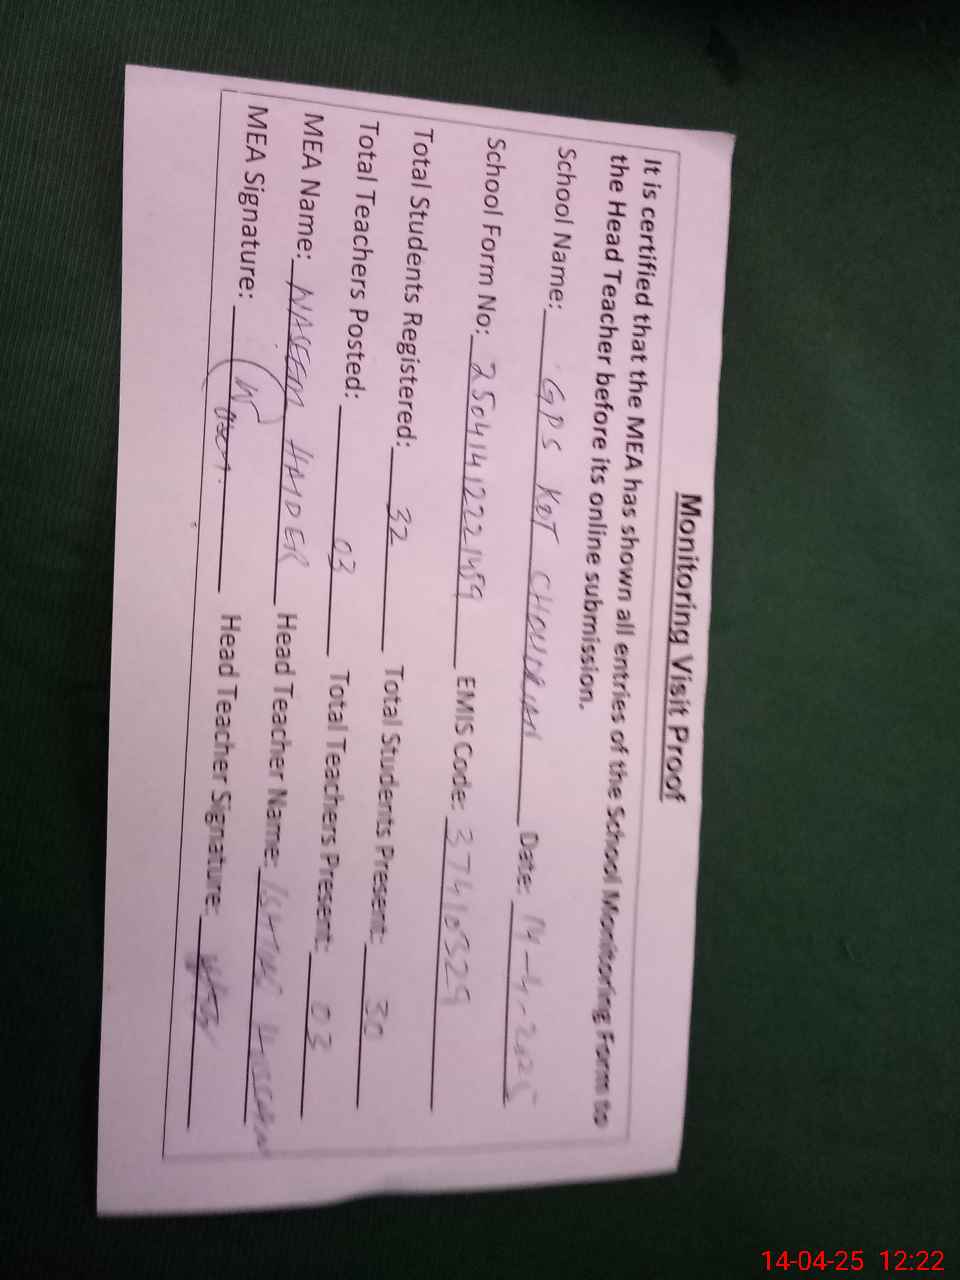 Monitoring Visit Proof
It is certified that the MEA has shown all entries of the School Monitoring Form to
the Head Teacher before its online submission.
School Name: GPS KOT CHOUDRIAN Date: 14-4-2025
School Form No: 25041412221459 EMIS Code: 37410329
Total Students Registered: 32 Total Students Present: 30
Total Teachers Posted: 03 Total Teachers Present: 03
MEA Name: NASEEM HAIDER Head Teacher Name: HASSAN
MEA Signature: Head Teacher Signature:
14-04-25 12:22